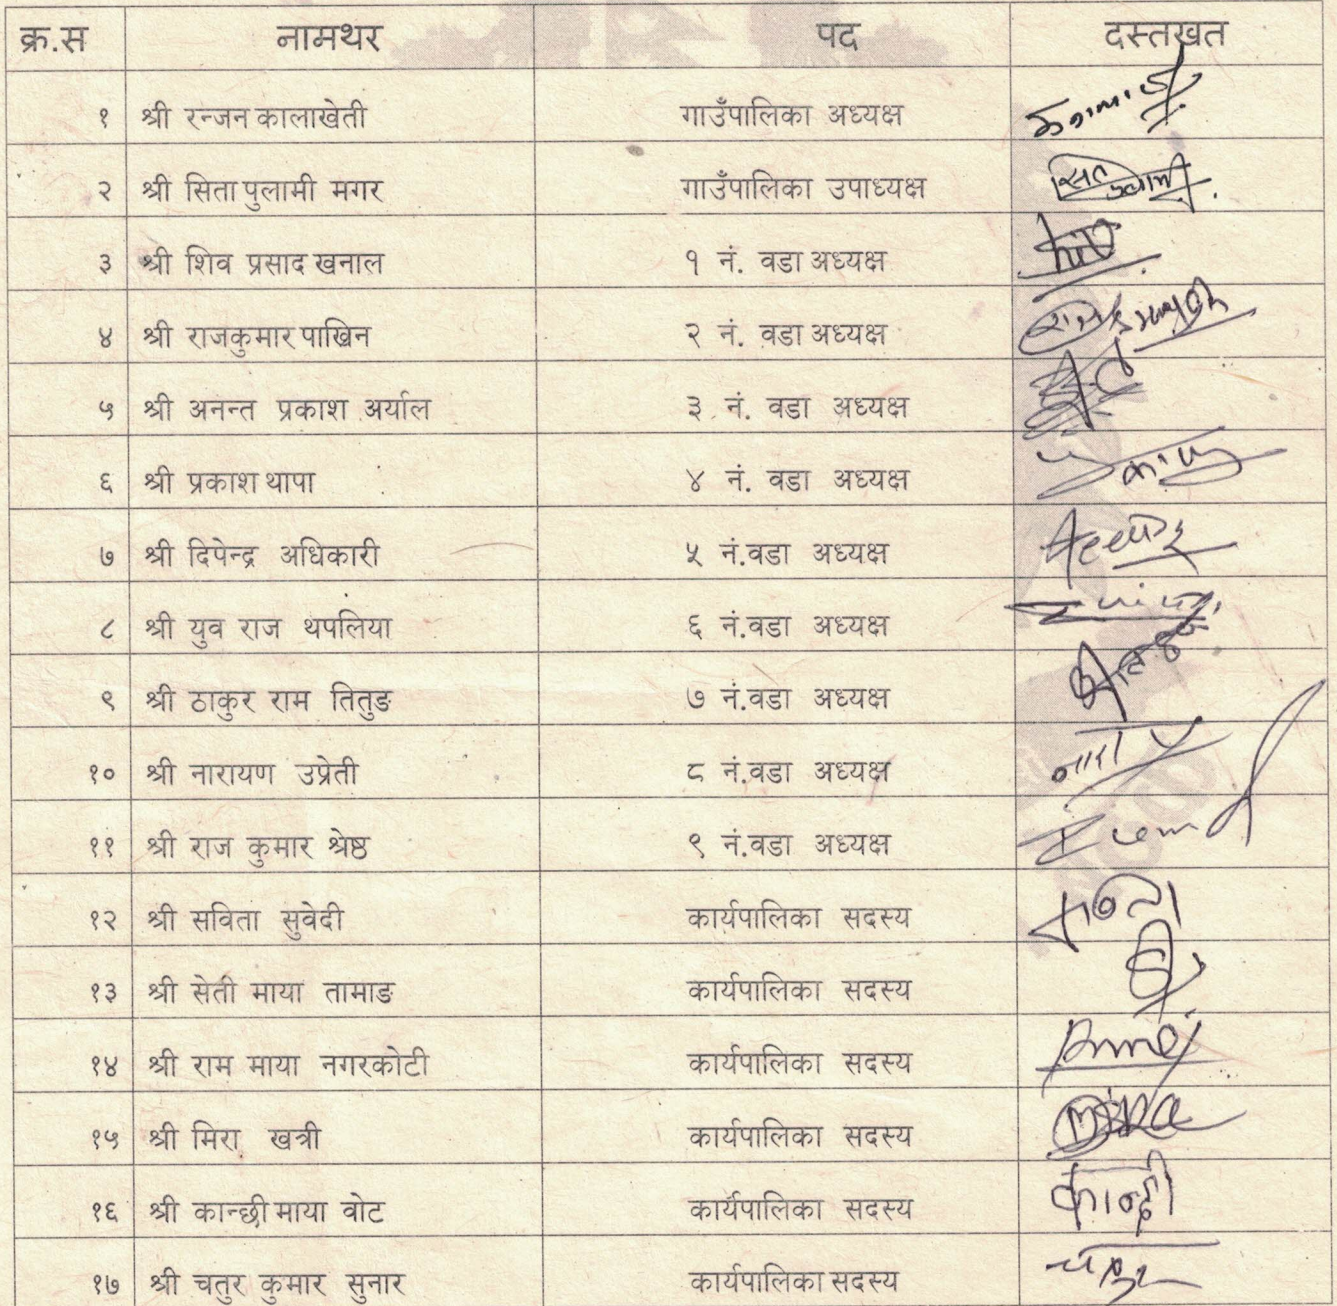 क्र.स नामथर पद दस्तखत
१ श्री रन्जन कालाखेती गाउँपालिका अध्यक्ष
२ श्री सिता पुलामी मगर गाउँपालिका उपाध्यक्ष
३ श्री शिव प्रसाद खनाल १ नं. वडा अध्यक्ष
४ श्री राजकुमार पाखिन २ नं. वडा अध्यक्ष
५ श्री अनन्त प्रकाश अर्याल ३ नं. वडा अध्यक्ष
६ श्री प्रकाश थापा ४ नं. वडा अध्यक्ष
७ श्री दिपेन्द्र अधिकारी ५ नं.वडा अध्यक्ष
८ श्री युव राज थपलिया ६ नं.वडा अध्यक्ष
९ श्री ठाकुर राम तितुङ ७ नं.वडा अध्यक्ष
१० श्री नारायण उप्रेती ८ नं.वडा अध्यक्ष
११ श्री राज कुमार श्रेष्ठ ९ नं.वडा अध्यक्ष
१२ श्री सविता सुवेदी कार्यपालिका सदस्य
१३ श्री सेती माया तामाङ कार्यपालिका सदस्य
१४ श्री राम माया नगरकोटी कार्यपालिका सदस्य
१५ श्री मिरा खत्री कार्यपालिका सदस्य
१६ श्री कान्छी माया वोट कार्यपालिका सदस्य
१७ श्री चतुर कुमार सुनार कार्यपालिका सदस्य